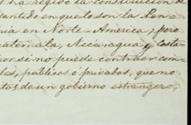 ha regido la constitucion de
partido en que lo son la Ran
ria en Norte-America; pero
uatemala, Nicaragua y Costa
por si no puede contraer com
les, publicos ó privados, que no
tos de un gobierno estrangero,